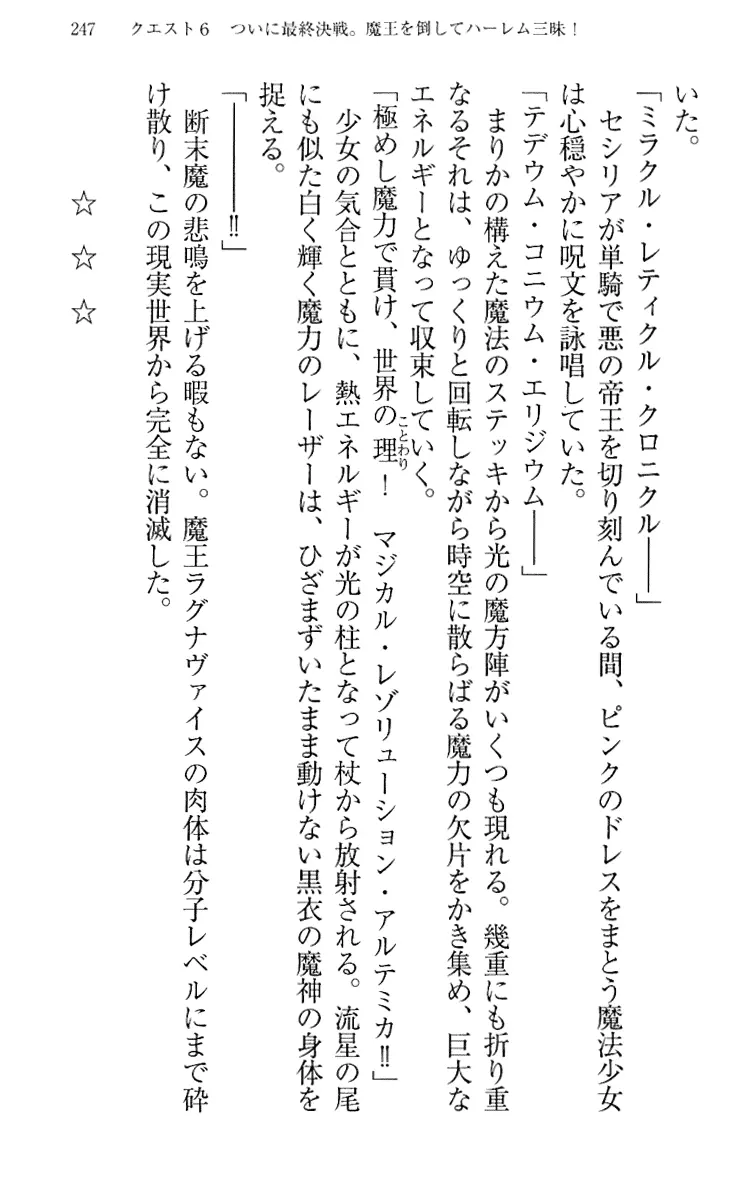 247　クエスト6　ついに最終決戦。魔王を倒してハーレム三昧！
いた。
「ミラクル・レティクル・クロニクル――」
　セシリアが単騎で悪の帝王を切り刻んでいる間、ピンクのドレスをまとう魔法少女
は心穏やかに呪文を詠唱していた。
「テデウム・コニウム・エリジウム――」
　まりかの構えた魔法のステッキから光の魔方陣がいくつも現れる。幾重にも折り重
なるそれは、ゆっくりと回転しながら時空に散らばる魔力の欠片をかき集め、巨大な
エネルギーとなって収束していく。
「極めし魔力で貫け、世界の理（ことわり）！　マジカル・レゾリューション・アルテミカ‼」
　少女の気合とともに、熱エネルギーが光の柱となって杖から放射される。流星の尾
にも似た白く輝く魔力のレーザーは、ひざまずいたまま動けない黒衣の魔神の身体を
捉える。
「――――‼」
　断末魔の悲鳴を上げる暇もない。魔王ラグナヴァイスの肉体は分子レベルにまで砕
け散り、この現実世界から完全に消滅した。
☆　☆　☆